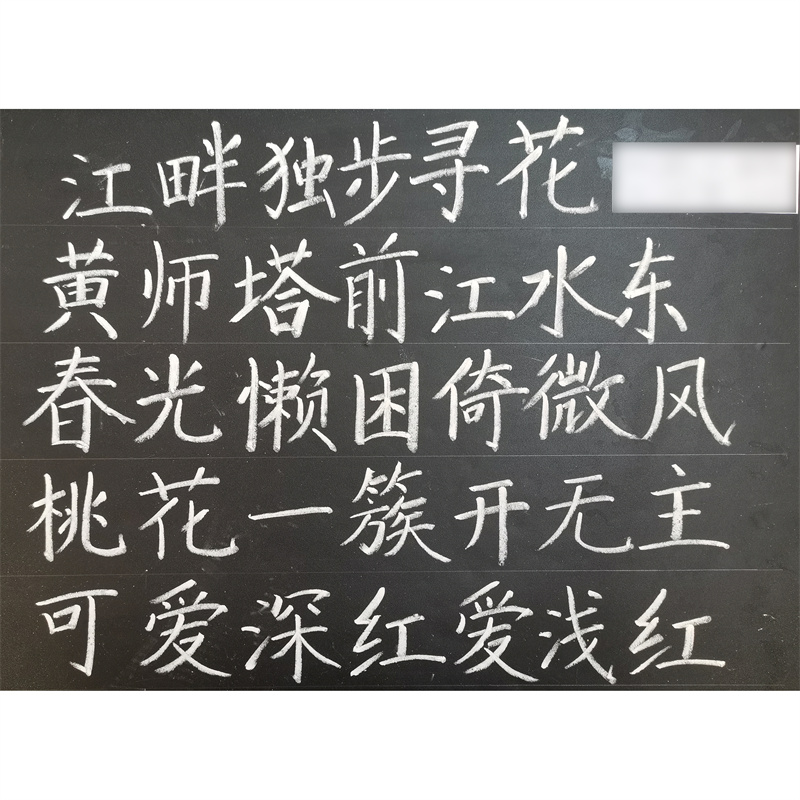 江畔独步寻花
黄师塔前江水东
春光懒困倚微风
桃花一簇开无主
可爱深红爱浅红